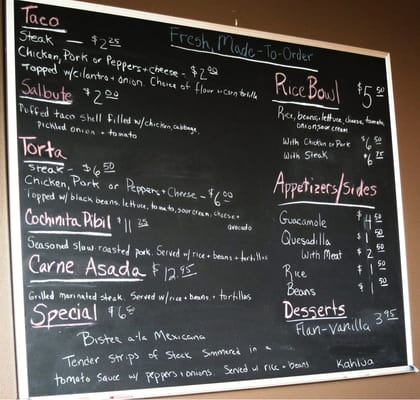 Taco
Fresh, Made-To-Order
Steak — $2.25
Chicken, Pork or Peppers + Cheese - $2.00
Topped w/cilantro + onion. Choice of flour or corn tortilla
Salbute $2.00
Puffed taco shell filled w/chicken, cabbage,
pickled onion + tomato
Torta
Steak - $6.50
Chicken, Pork or Peppers + Cheese - $6.00
Topped w/ black beans, lettuce, tomato, sour cream, cheese +
avocado
Cochinita Pibil $11.25
Seasoned slow roasted pork. Served w/ rice + beans + tortillas
Carne Asada $12.95
Grilled marinated steak. Served w/ rice + beans + tortillas
Special $6.50
Bistec a-la Mexicana
Tender strips of steak simmered in a
tomato sauce w/ peppers + onions. Served w/ rice + beans
Rice Bowl $5.50
Rice, beans, lettuce, cheese, tomato,
onion, sour cream
With Chicken or Pork $6.50
With Steak $6.75
Appetizers/Sides
Guacamole $4.50
Quesadilla $1.50
With Meat $2.50
Rice $1.50
Beans $1.50
Desserts
Flan-Vanilla 3.95
Kahlua